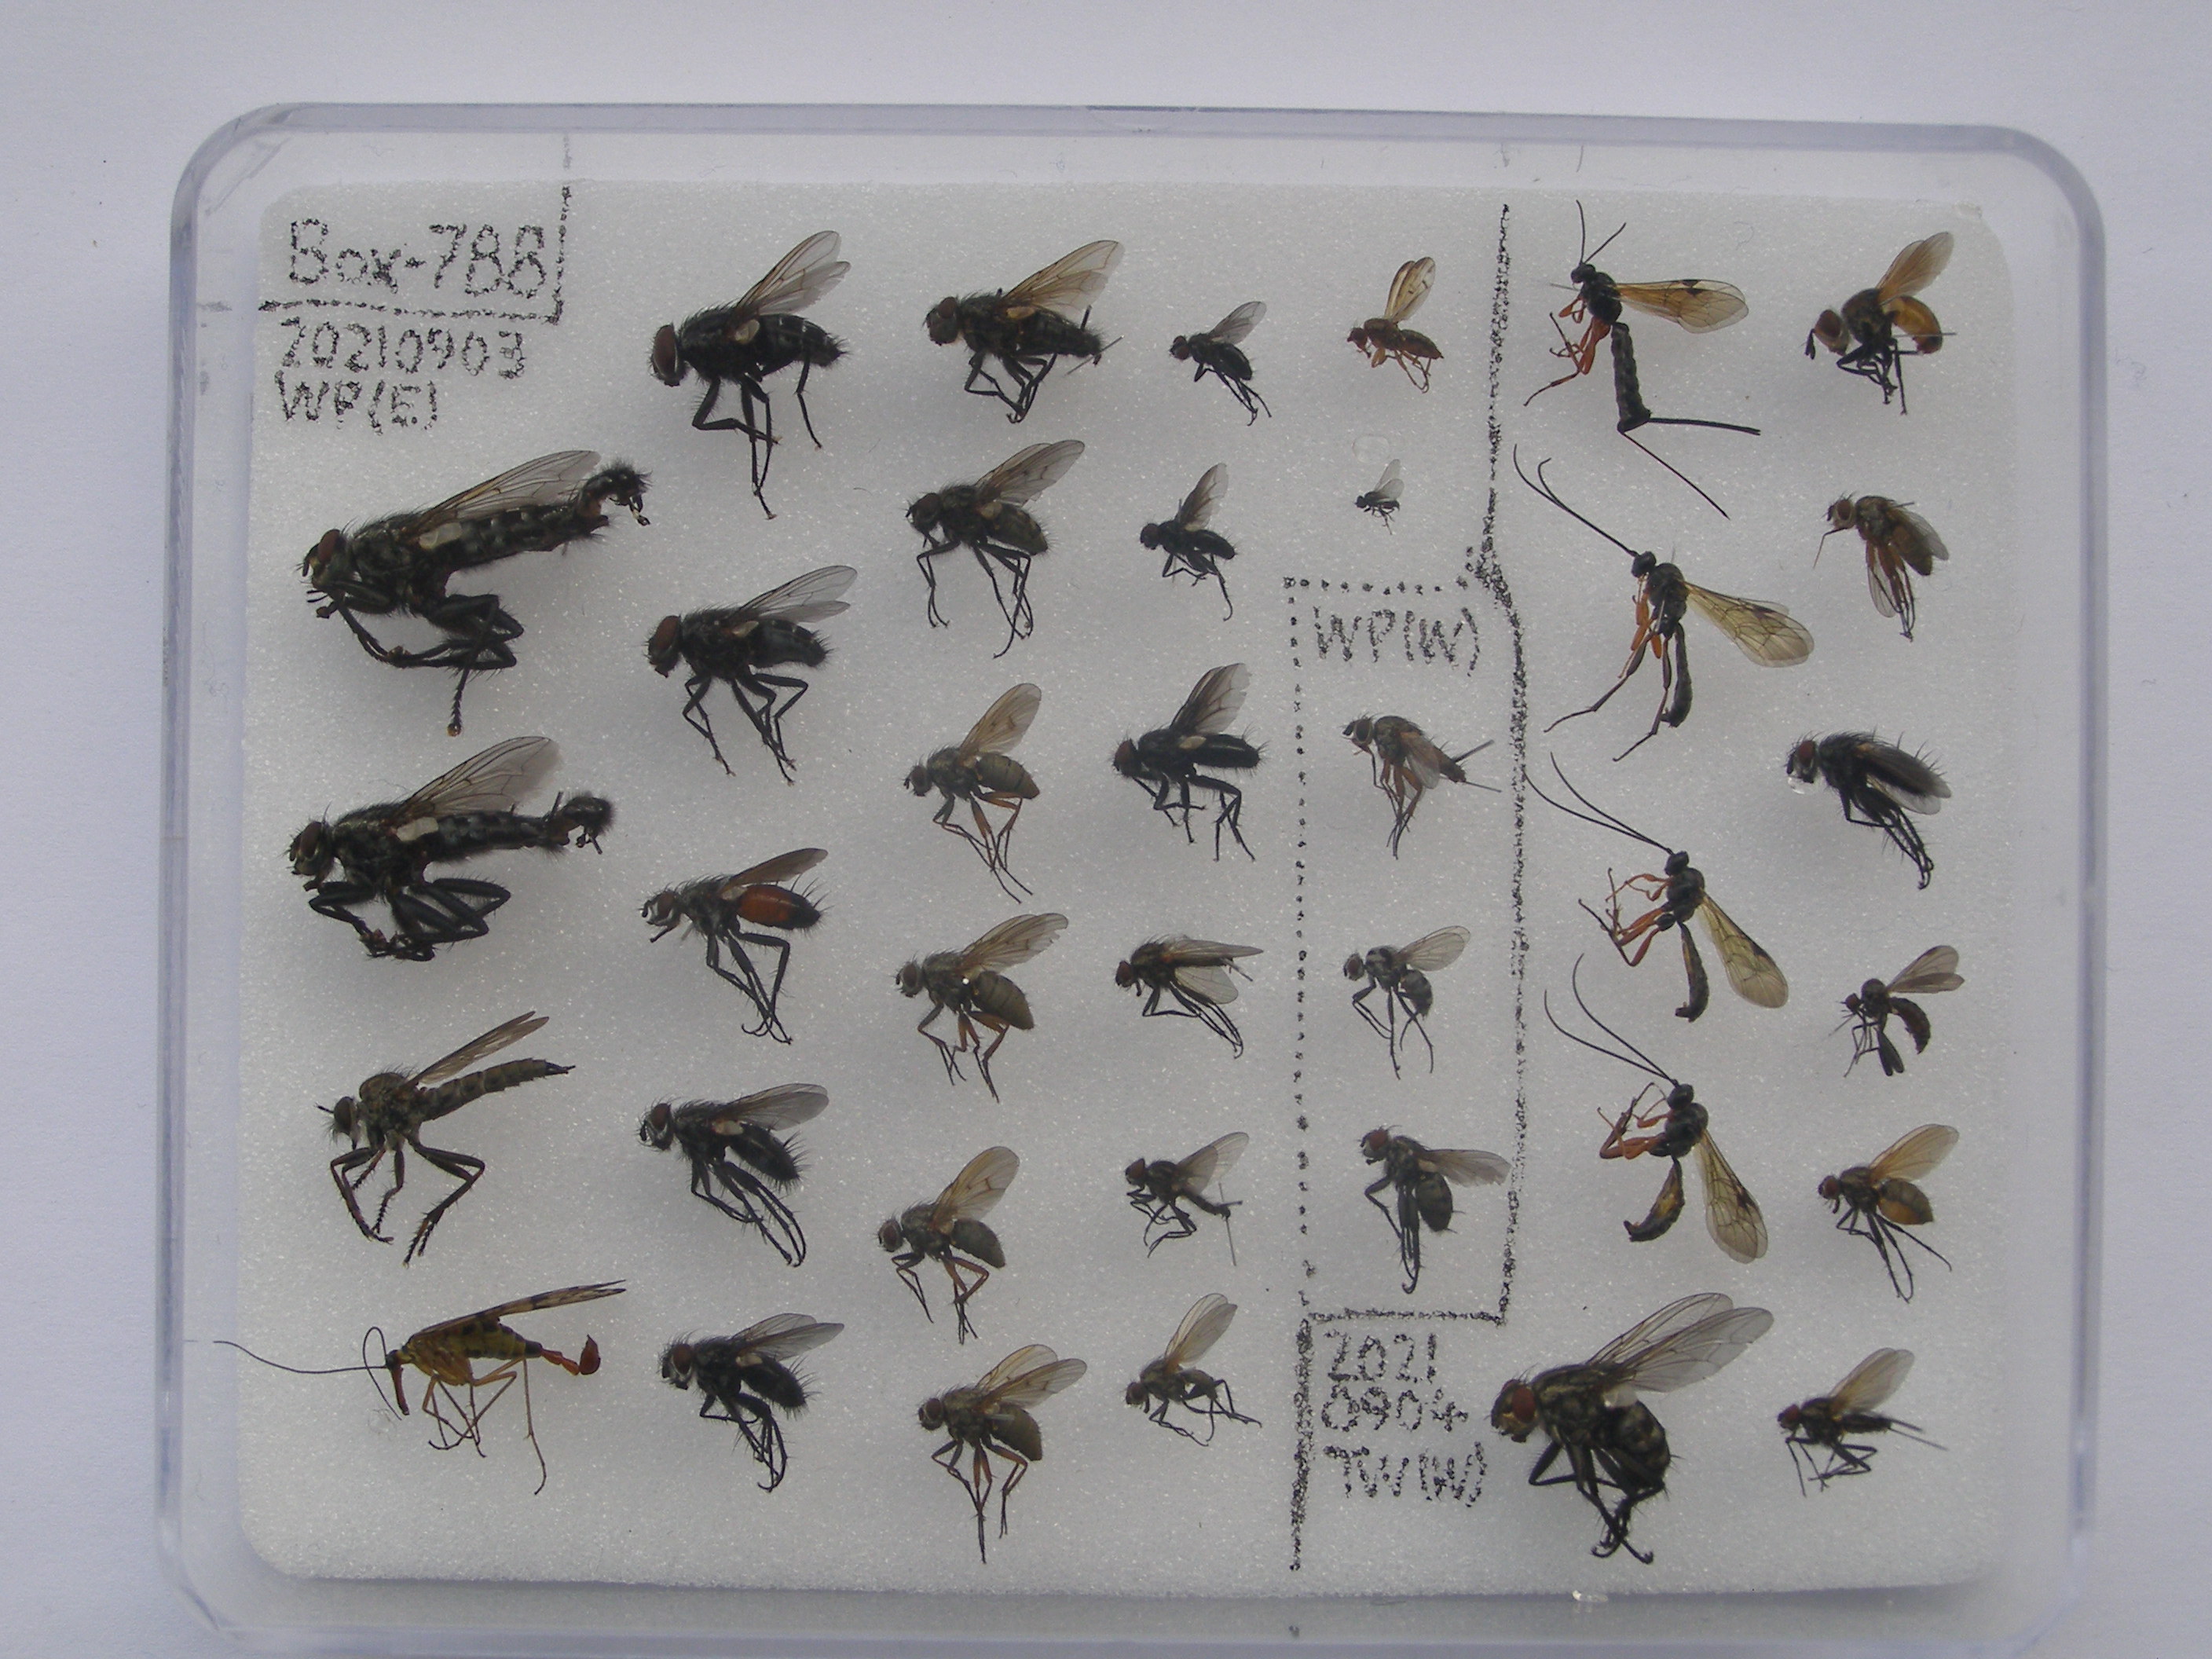 Box-788
20210903
WP(E)
WP(W)
2021
0904
TW(W)